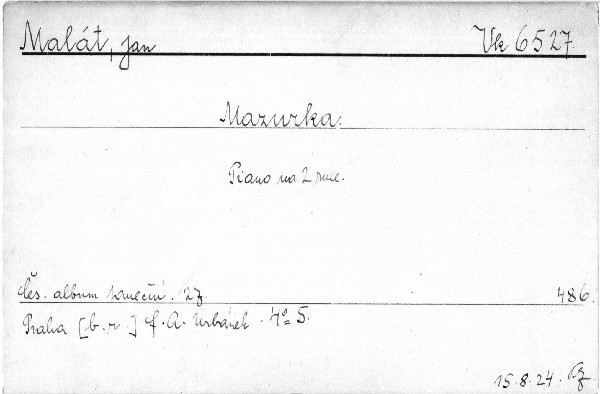 Malát, Jan Vk 6527.
Mazurka.
Piano na 2 ruce.
Čes. album taneční. 27. 486.
Praha [b.r.] f. A. Urbánek. 4° 5.
15.8.24.